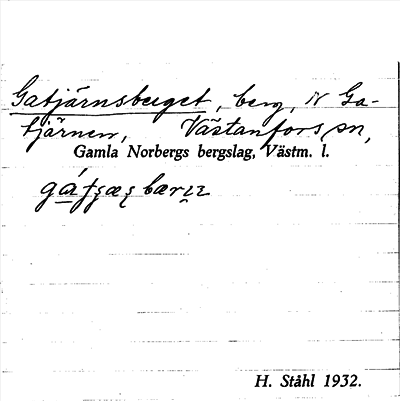 Gatjärnsberget, berg, N Ga-
tjärnen, Västanfors sn,
Gamla Norbergs bergslag, Västm. l.
H. Ståhl 1932.